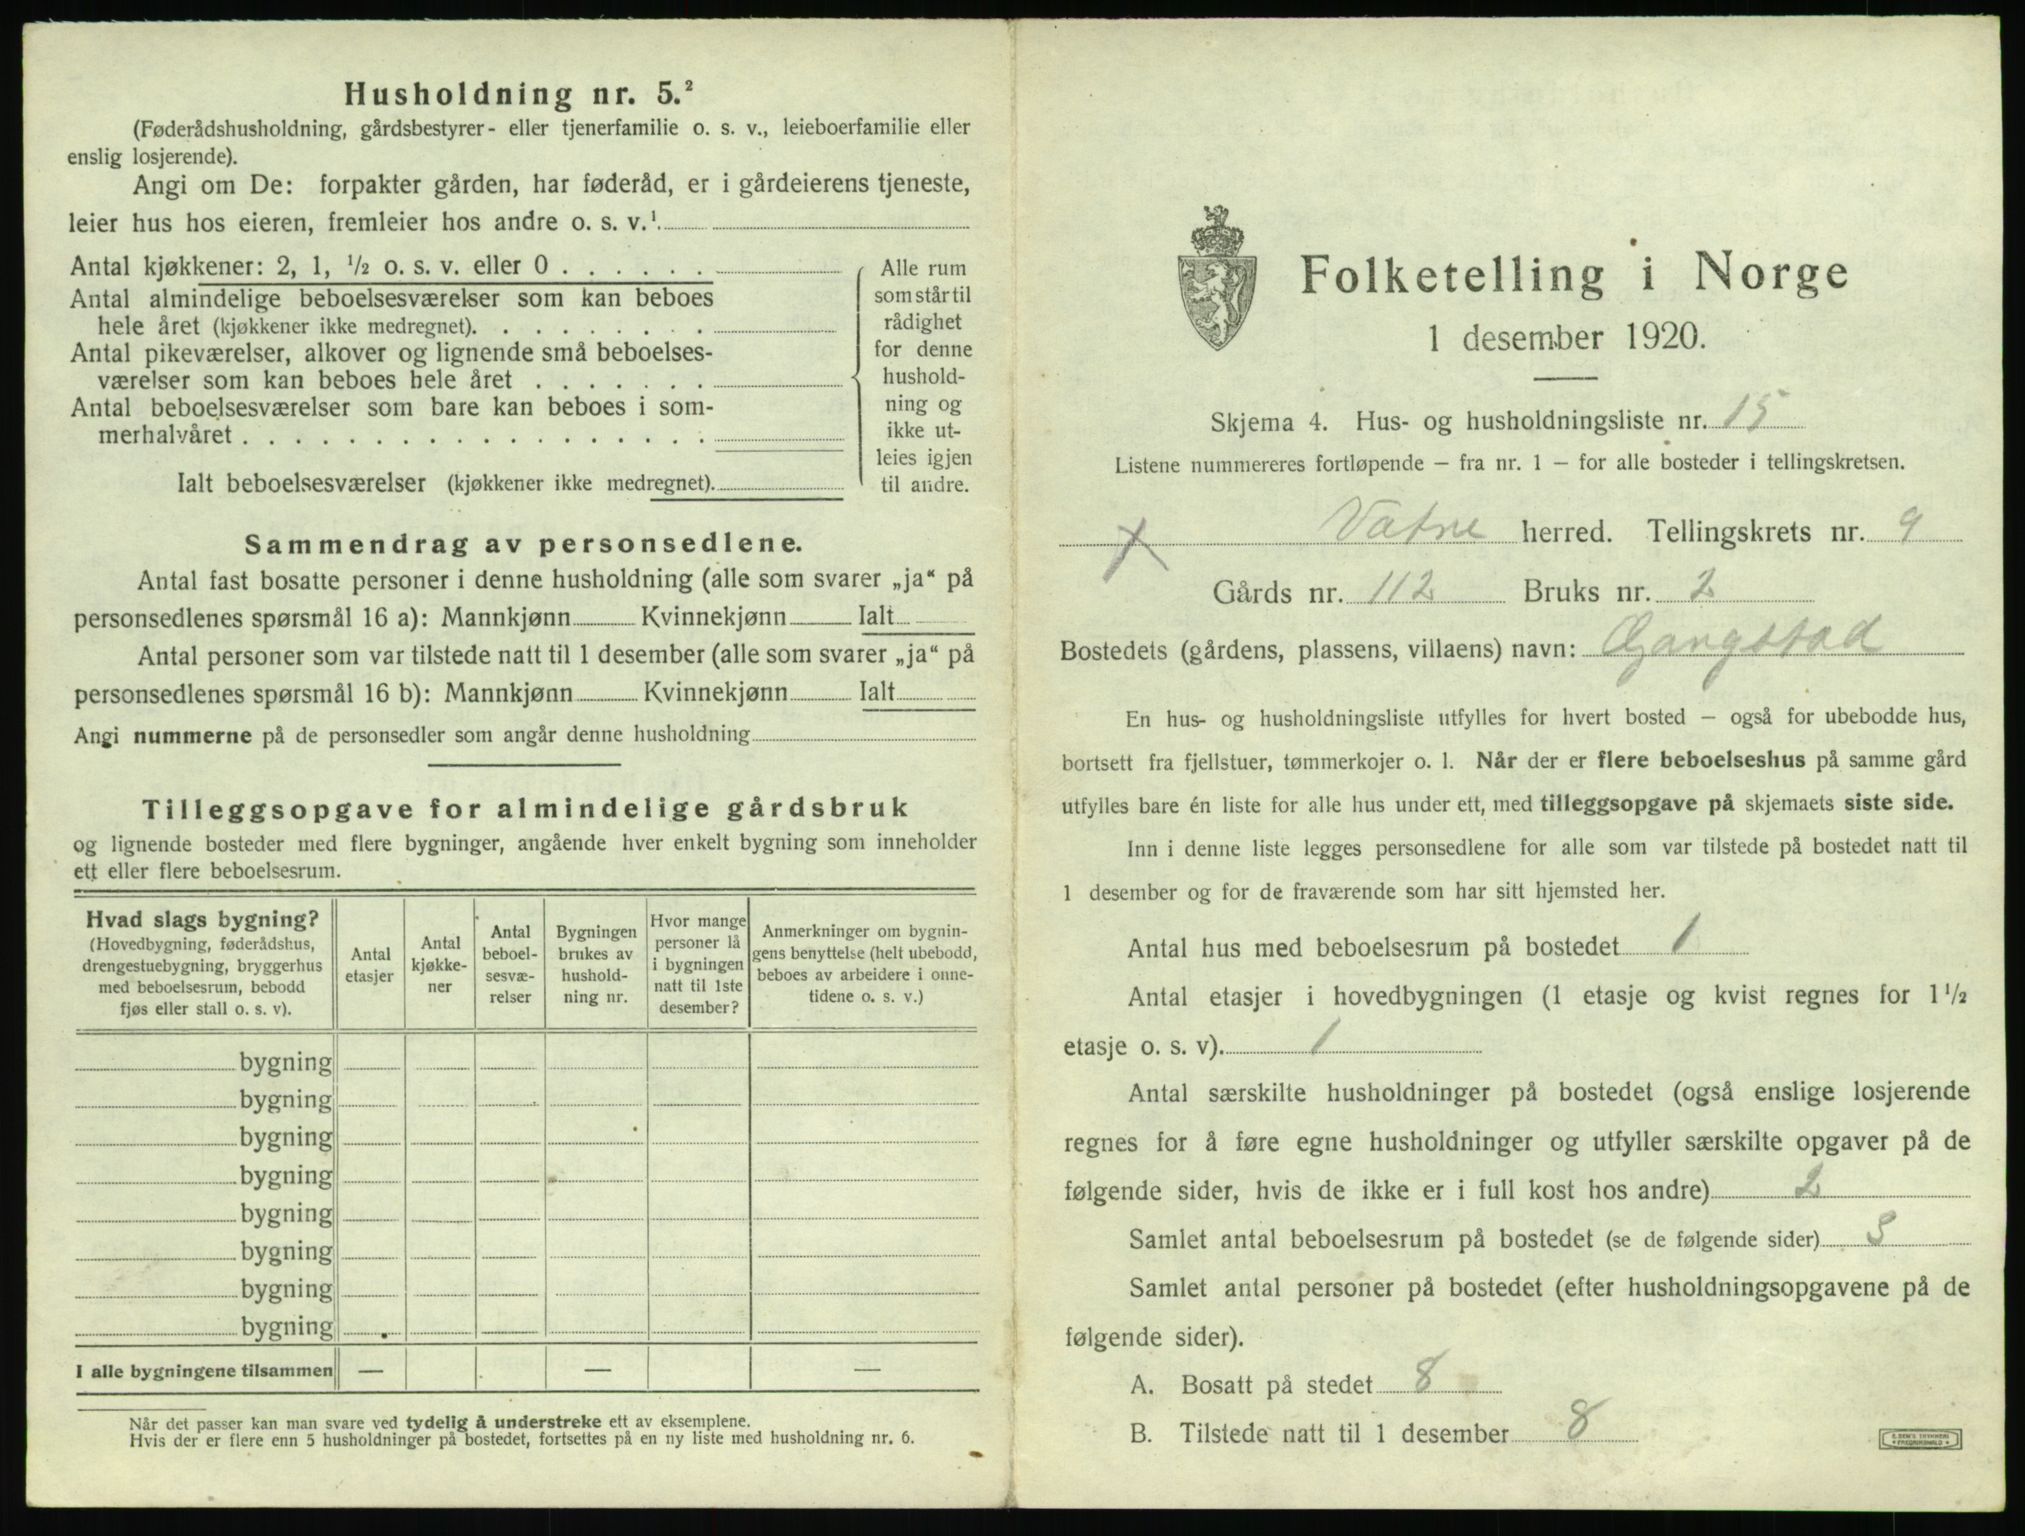 Husholdning nr. 5.²
(Føderådshusholdning, gårdsbestyrer- eller tjenerfamilie o. s. v., leieboerfamilie eller
enslig losjerende).
Angi om De: forpakter gården, har føderåd, er i gårdeierens tjeneste,
leier hus hos eieren, fremleier hos andre o. s. v.¹
Antal kjøkkener: 2, 1, ½ o. s. v. eller 0 . . . . . .
Antal almindelige beboelsesværelser som kan beboes
hele året (kjøkkener ikke medregnet). . . . . . . . .
Antal pikeværelser, alkover og lignende små beboelses-
værelser som kan beboes hele året . . . . . . .
Antal beboelsesværelser som bare kan beboes i som-
merhalvåret . . . . . . . . . . . . . . . . . .
Ialt beboelsesværelser (kjøkkener ikke medregnet).
Alle rum
som står til
rådighet
for denne
hushold-
ning og
ikke ut-
leies igjen
til andre.
Sammendrag av personsedlene.
Antal fast bosatte personer i denne husholdning (alle som svarer „ja“ på
personsedlenes spørsmål 16 a): Mannkjønn Kvinnekjønn Ialt
Antal personer som var tilstede natt til 1 desember (alle som svarer „ja“ på
personsedlenes spørsmål 16 b): Mannkjønn Kvinnekjønn Ialt
Angi nummerne på de personsedler som angår denne husholdning
Tilleggsopgave for almindelige gårdsbruk
og lignende bosteder med flere bygninger, angående hver enkelt bygning som inneholder
ett eller flere beboelsesrum.
Hvad slags bygning?
(Hovedbygning, føderådshus,
drengestuebygning, bryggerhus
med beboelsesrum, bebodd
fjøs eller stall o. s. v).
Antal
etasjer
Antal
kjøkke-
ner
Antal
beboel-
sesvæ-
relser
Bygningen
brukes av
hushold-
ning nr.
Hvor mange
personer lå
i bygningen
natt til 1ste
desember?
Anmerkninger om bygnin-
gens benyttelse (helt ubebodd,
beboes av arbeidere i onne-
tidene o. s. v.)
bygning
bygning
bygning
bygning
bygning
bygning
bygning
bygning
I alle bygningene tilsammen — — —
Når det passer kan man svare ved tydelig å understreke ett av eksemplene.
Hvis der er flere enn 5 husholdninger på bostedet, fortsettes på en ny liste med husholdning nr. 6.
Folketelling i Norge
1 desember 1920.
Skjema 4. Hus- og husholdningsliste nr. 15
Listene nummereres fortløpende – fra nr. 1 – for alle bosteder i tellingskretsen.
X Vatne herred. Tellingskrets nr. 9
Gårds nr. 112 Bruks nr. 2
Bostedets (gårdens, plassens, villaens) navn: Gangstad
En hus- og husholdningsliste utfylles for hvert bosted – også for ubebodde hus,
bortsett fra fjellstuer, tømmerkojer o. l. Når der er flere beboelseshus på samme gård
utfylles bare én liste for alle hus under ett, med tilleggsopgave på skjemaets siste side.
Inn i denne liste legges personsedlene for alle som var tilstede på bostedet natt til
1 desember og for de fraværende som har sitt hjemsted her.
Antal hus med beboelsesrum på bostedet 1
Antal etasjer i hovedbygningen (1 etasje og kvist regnes for 1½
etasje o. s. v). 1
Antal særskilte husholdninger på bostedet (også enslige losjerende
regnes for å føre egne husholdninger og utfyller særskilte opgaver på de
følgende sider, hvis de ikke er i full kost hos andre) 2
Samlet antal beboelsesrum på bostedet (se de følgende sider) 3
Samlet antal personer på bostedet (efter husholdningsopgavene på de
følgende sider).
A. Bosatt på stedet 8
B. Tilstede natt til 1 desember 8